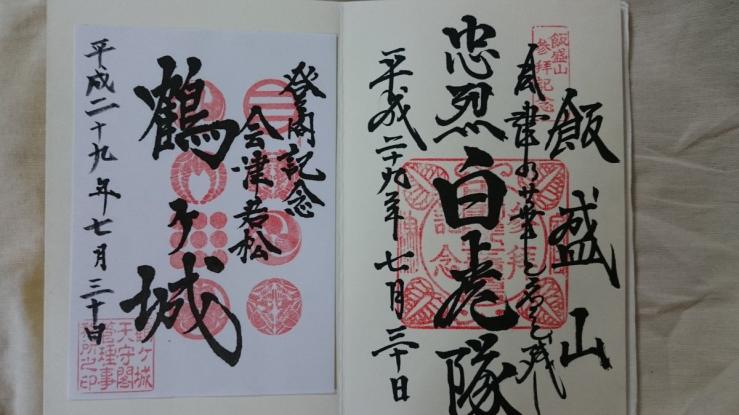 飯盛山
参拝記念
飯盛山
忠烈白虎隊
平成二十九年七月三十日
登閣記念
会津若松
鶴ヶ城
平成二十九年七月三十日
鶴ヶ城
天守閣
管理事
務所之印